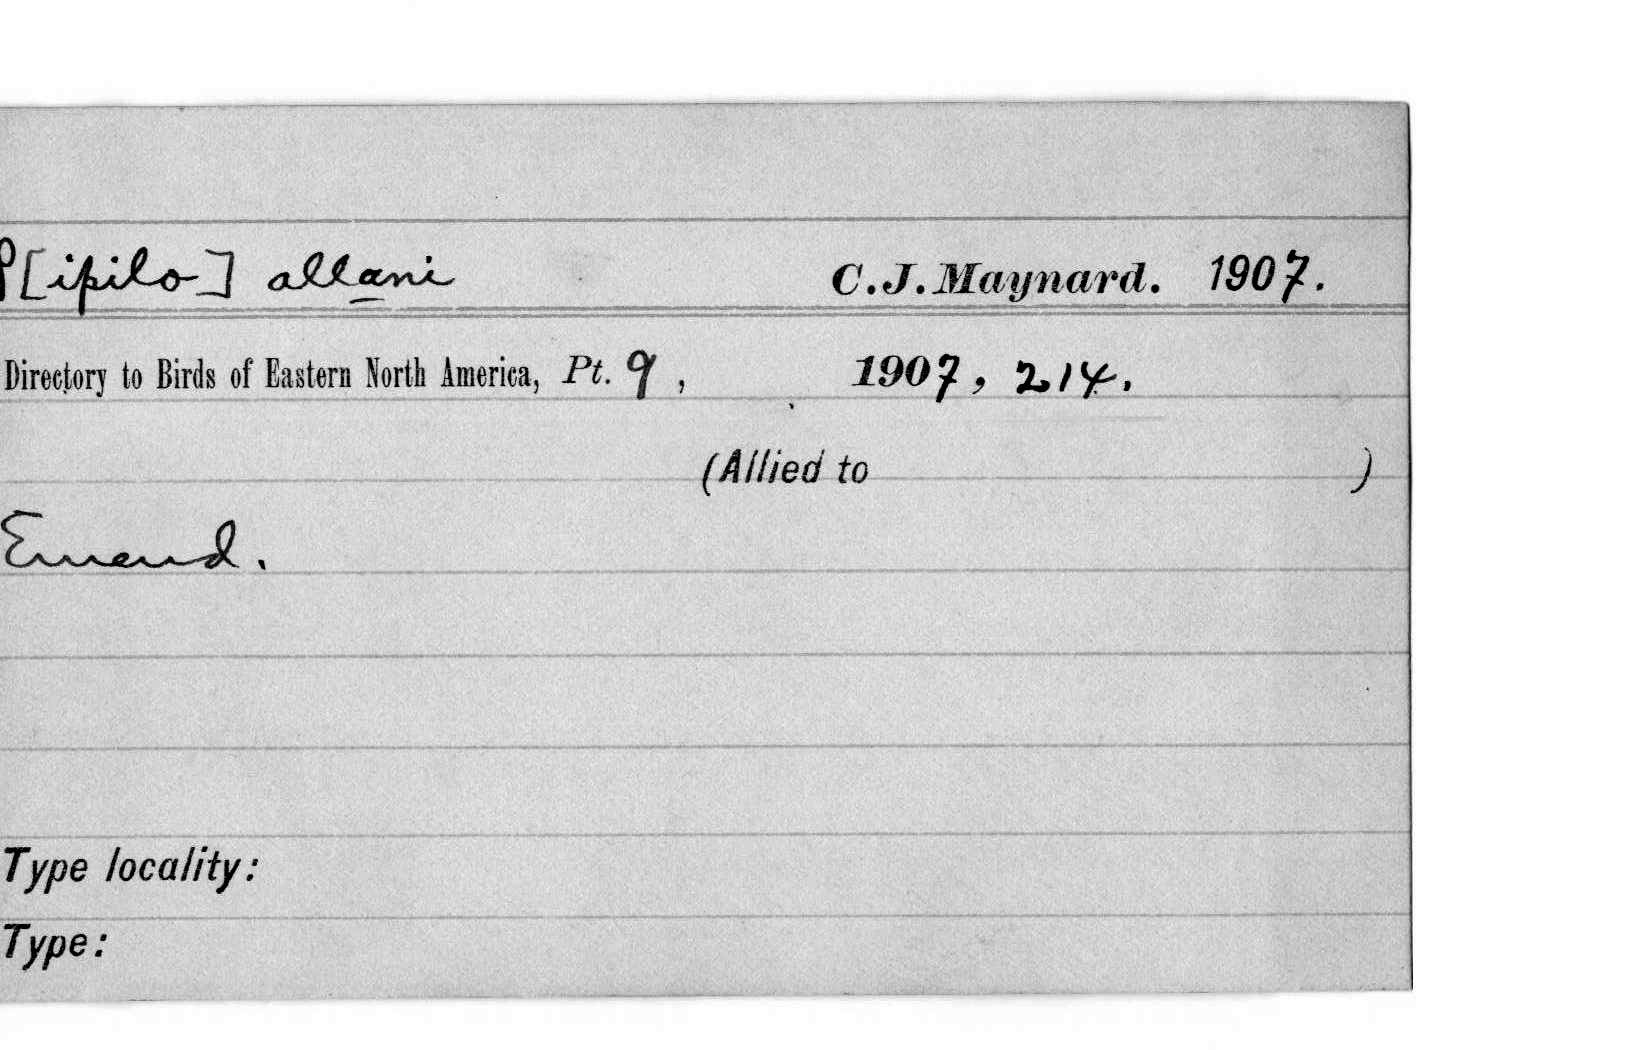 P[ipilo] allani C.J. Maynard. 1907.
Directory to Birds of Eastern North America, Pt. 9, 1907, 214.
(Allied to )
Emend.
Type locality:
Type: